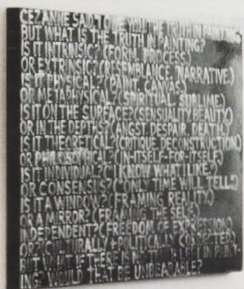 CEZANNE SAID, I OWE YOU THE TRUTH IN PAINTING
BUT WHAT IS THE TRUTH IN PAINTING?
IS IT INTRINSIC? (FORM, PROCESS)
OR EXTRINSIC? (RESEMBLANCE, NARRATIVE.)
IS IT PHYSICAL? (PAINT, CANVAS)
OR METAPHYSICAL? (SPIRITUAL, SUBLIME.)
IS IT ON THE SURFACE? (SENSUALITY BEAUTY)
OR IN THE DEPTHS? (ANGST, DESPAIR, DEATH.)
IS IT THEORETICAL? (CRITIQUE, DECONSTRUCTION)
OR PHILOSOPHICAL? (IN-ITSELF-FOR-ITSELF.)
IS IT INDIVIDUAL? ("I KNOW WHAT I LIKE.")
OR CONSENSUS? ("ONLY TIME WILL TELL.")
IS IT A WINDOW? (FRAMING REALITY)
OR A MIRROR? (FRAMING THE SELF)
INDEPENDENT? (FREEDOM OF EXPRESSION)
OR CULTURALLY/POLITICALLY
BUT WHAT IF THERE IS NO TRUTH IN PAINT-
ING? WOULD THAT BE UNBEARABLE?